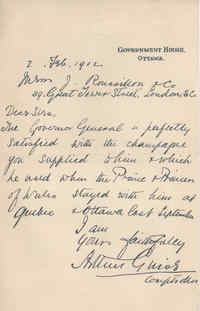 GOVERNMENT HOUSE,
OTTAWA.
2 Feb. 1902
Messrs J. & Co
Great Tower Street, London EC
Dear Sirs,
The Governor General is perfectly
satisfied with the champagne
you supplied when & which
he used when the Prince & Princess
of Wales stayed with him at
Quebec & Ottawa last September
I am
Yours faithfully
Arthur
Comptroller